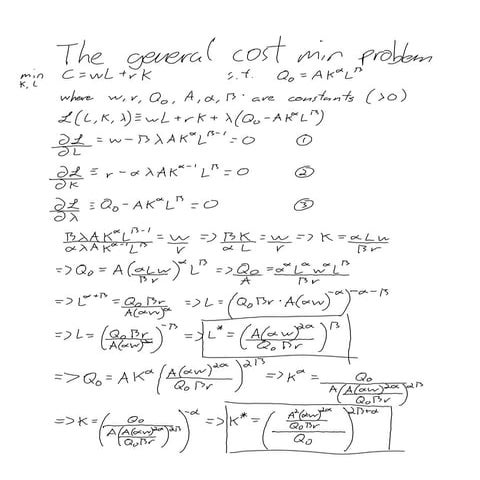 The general cost min problem
min K, L C = wL + rK s.t. Q₀ = AK^α L^β
where w, r, Q₀, A, α, β are constants (>0)
ℒ(L, K, λ) ≡ wL + rK + λ(Q₀ - AK^α L^β)
∂ℒ/∂L = w - βλAK^α L^(β-1) = 0 ①
∂ℒ/∂K ≡ r - αλAK^(α-1) L^β = 0 ②
∂ℒ/∂λ ≡ Q₀ - AK^α L^β = 0 ③
(βλAK^α L^(β-1))/(αλAK^(α-1) L^β) = w/r => βK/αL = w/r => K = αLw/βr
=> Q₀ = A(αLw/βr)^α L^β => Q₀/A = (α^α L^α w^α L^β)/(βr)
=> L^(α+β) = Q₀βr/(A(αw)^α) => L = (Q₀βr · A(αw)^-α)^(-α-β)
=> L = (Q₀βr/(A(αw)^2))^-β => L* = (A(αw)^(2α)/(Q₀βr))^β
=> Q₀ = AK^α (A(αw)^(2α)/(Q₀βr))^(2β) => K^α = Q₀/(A(A(αw)^(2α)/(Q₀βr))^(2β))
=> K = (Q₀/(A(A(αw)^(2α)/(Q₀βr))^(2β)))^-α => K* = ((A²(αw)^(2α)/(Q₀βr))/Q₀)^(2β+α)